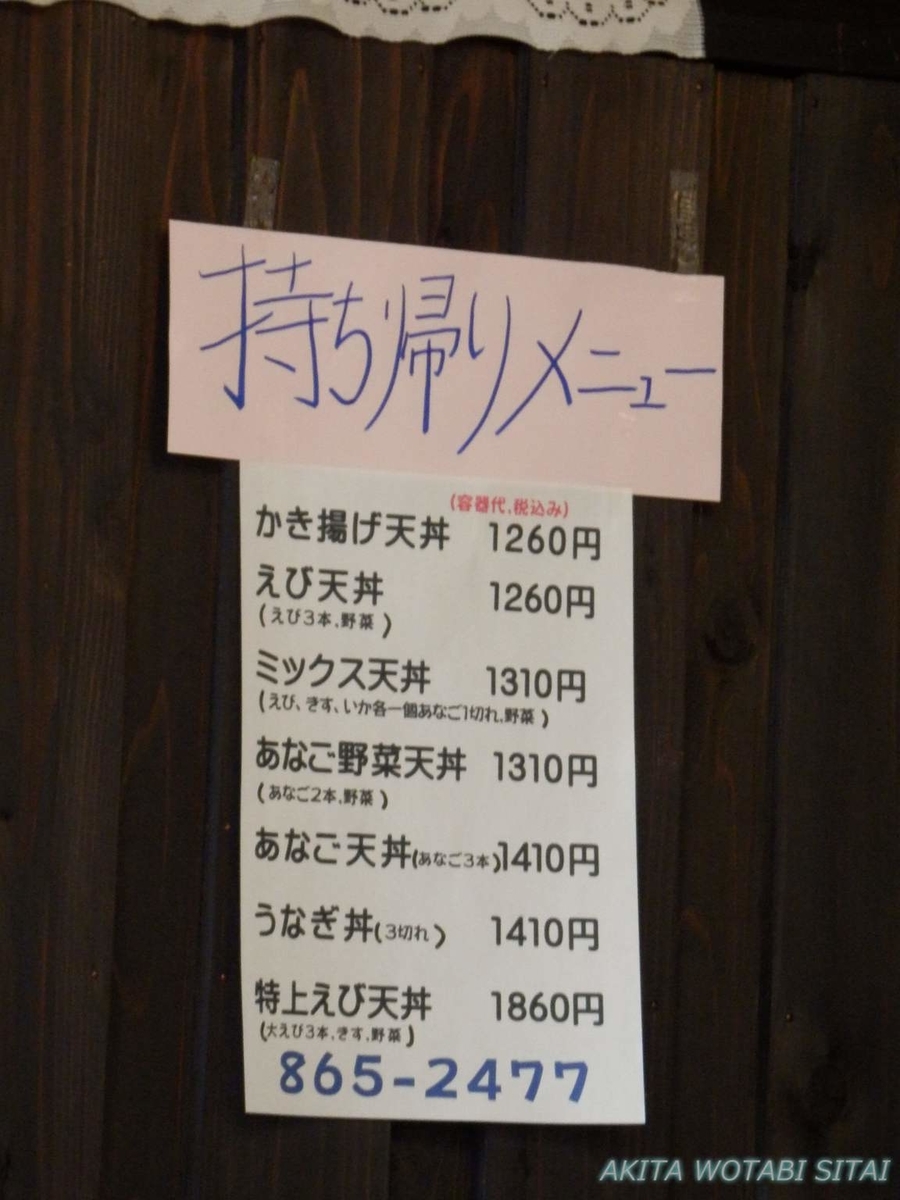 持ち帰りメニュー
(容器代,税込み)
かき揚げ天丼 1260円
えび天丼 1260円
(えび3本,野菜)
ミックス天丼 1310円
(えび、きす、いか各一個あなご1切れ,野菜)
あなご野菜天丼 1310円
(あなご2本,野菜)
あなご天丼(あなご3本)1410円
うなぎ丼(3切れ) 1410円
特上えび天丼 1860円
(大えび3本,きす,野菜)
865-2477
AKITA WOTABI SITAI